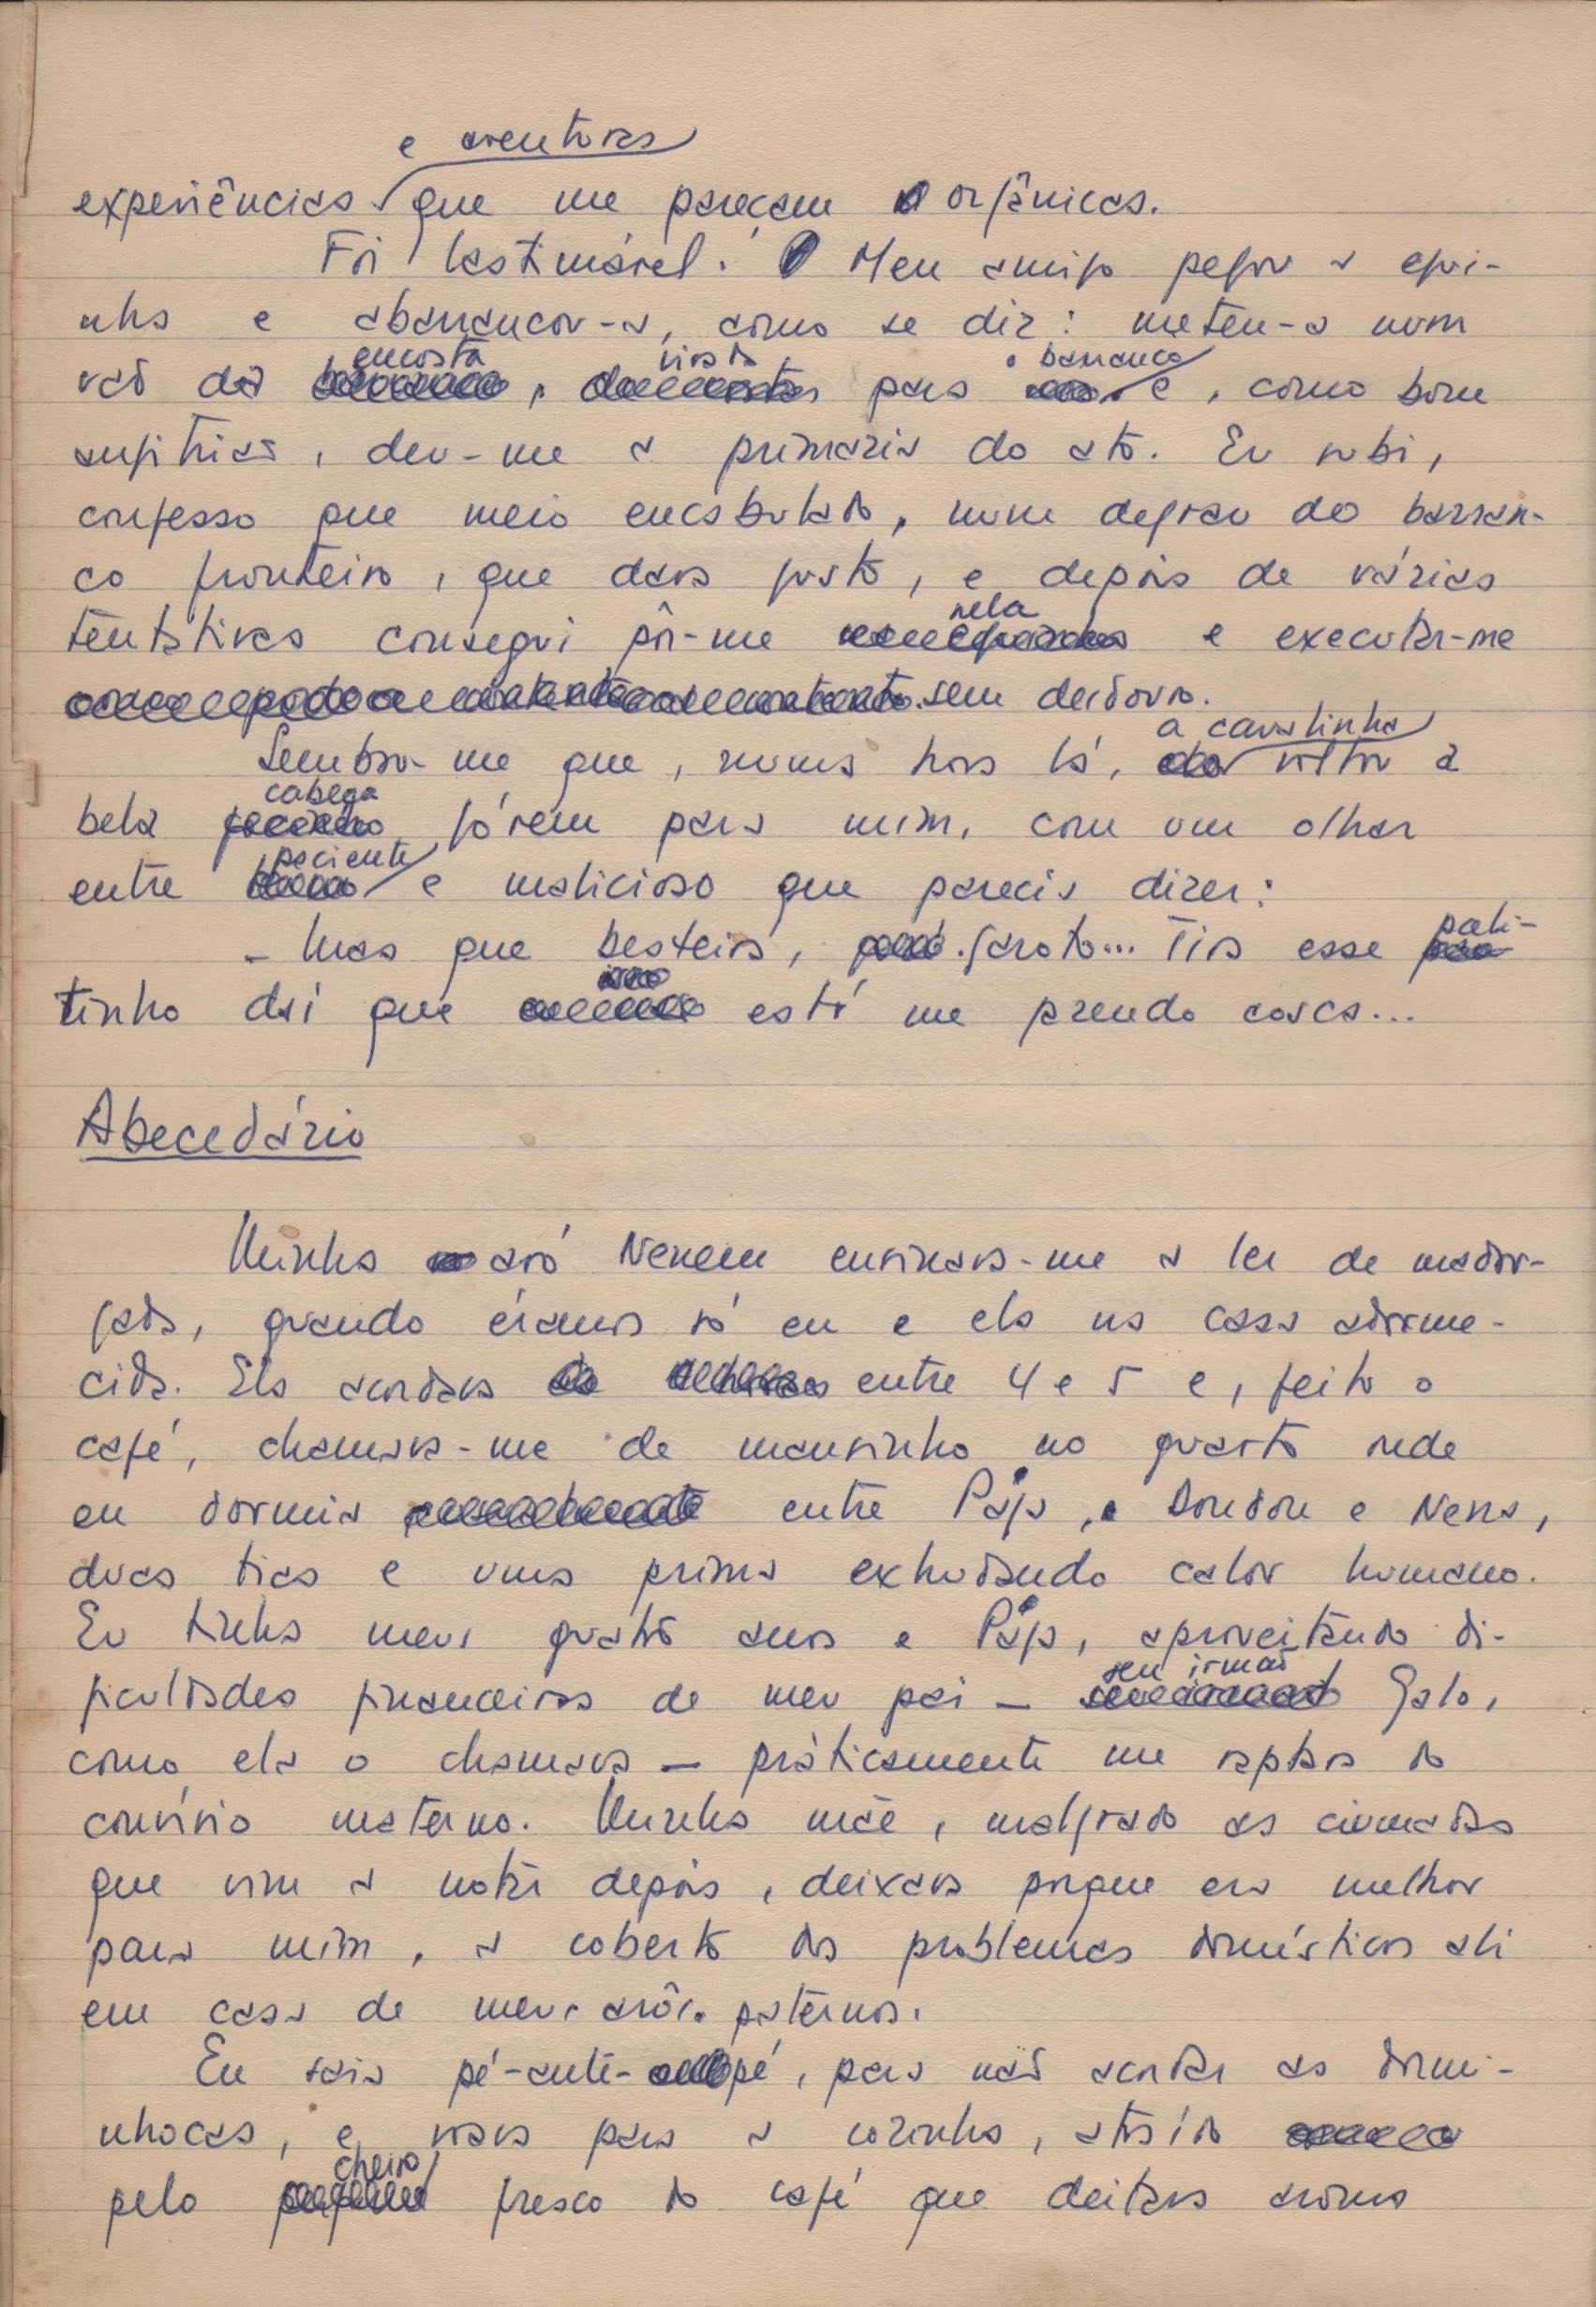 e aventuras
experiências que me pareçam orgânicas.
Foi lastimável. Meu amigo pegou a egüi-
nha e abarrancou-a, como se diz: meteu-a num
encosta virada o barranco
vão da , para e, como bom
anfitrião, deu-me a primazia do ato. Eu subi,
confesso que meio encabulado, num degrau do barran-
co fronteiro, que dava justo, e depois de várias
nela
tentativas consegui pôr-me e executar-me
sem desdouro.
a cavalinha
Lembra-me que, numa hora lá, voltou a
cabeça
bela jóvem para mim, com um olhar
paciente
entre e malicioso que parecia dizer:
- Mas que besteira, garoto... Tira esse pali-
tinho daí que está me fazendo cosca...
Abecedário
Minha avó Neném ensinava-me a ler de madru-
gada, quando éramos só eu e ela na casa adorme-
cida. Ela acordava entre 4 e 5 e, feito o
café, chamava-me de mansinho no quarto onde
eu dormia entre Pája, Dondon e Nena,
duas tias e uma prima exhudando calor humano.
Eu tinha meus quatro anos e Pája, aproveitando di-
seu irmão
ficuldades financeiras de meu pai — Galo,
como ela o chamava — pràticamente me raptara do
convívio materno. Minha mãe, malgrado as ciumadas
que vim a notar depois, deixava porque era melhor
para mim, a coberto dos problemas domésticos ali
em casa de meus avós paternos.
Eu saía pé-ante-pé, para não acordar as dormi-
nhocas, e voava para a cozinha, atraído
cheiro
pelo fresco do café que deitava aroma